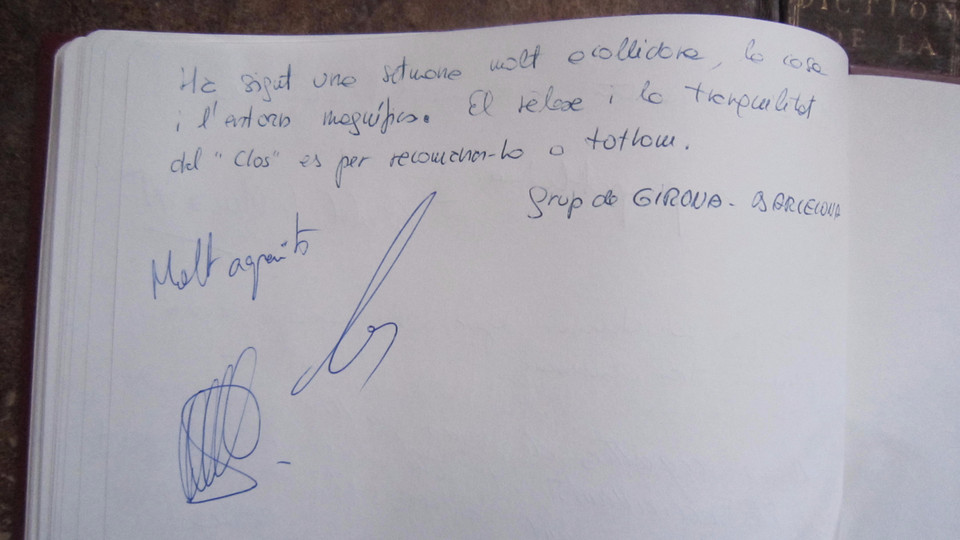 Ha sigut una setmana molt acollidora, la casa
i l'entorn magnífics. El relaxe i la tranquilitat
del "Clos" es per recomenar-lo a tothom.
Grup de GIRONA - BARCELONA
Molt agraïts
DICTION
DE LA